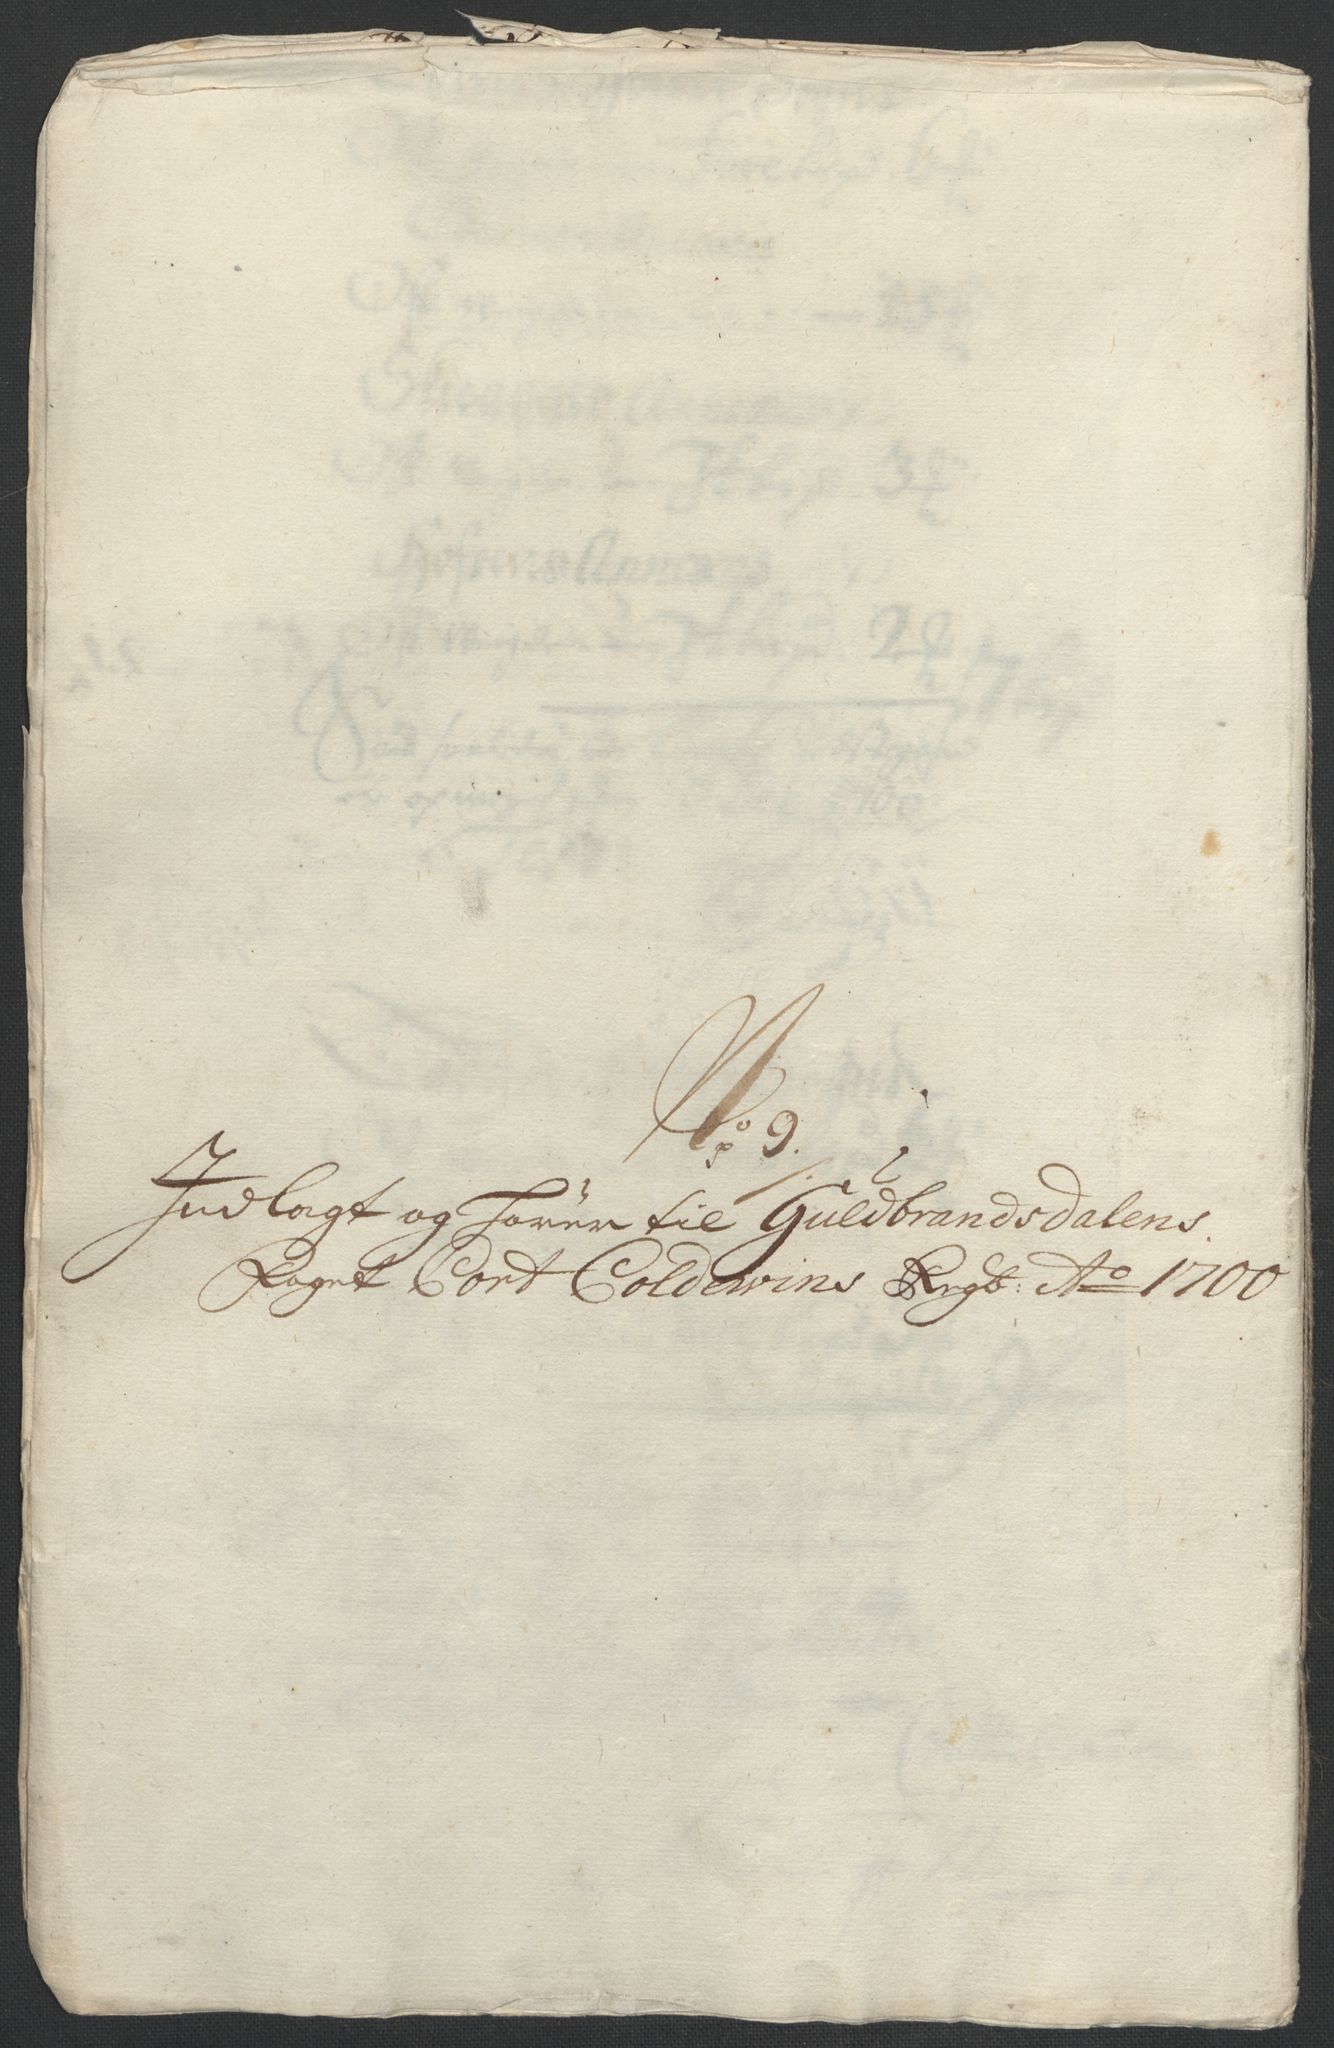 No 9.
Indlagt og hører til Guldbrandsdalens
Foget Cort Coldewins Regb: Ao 1700